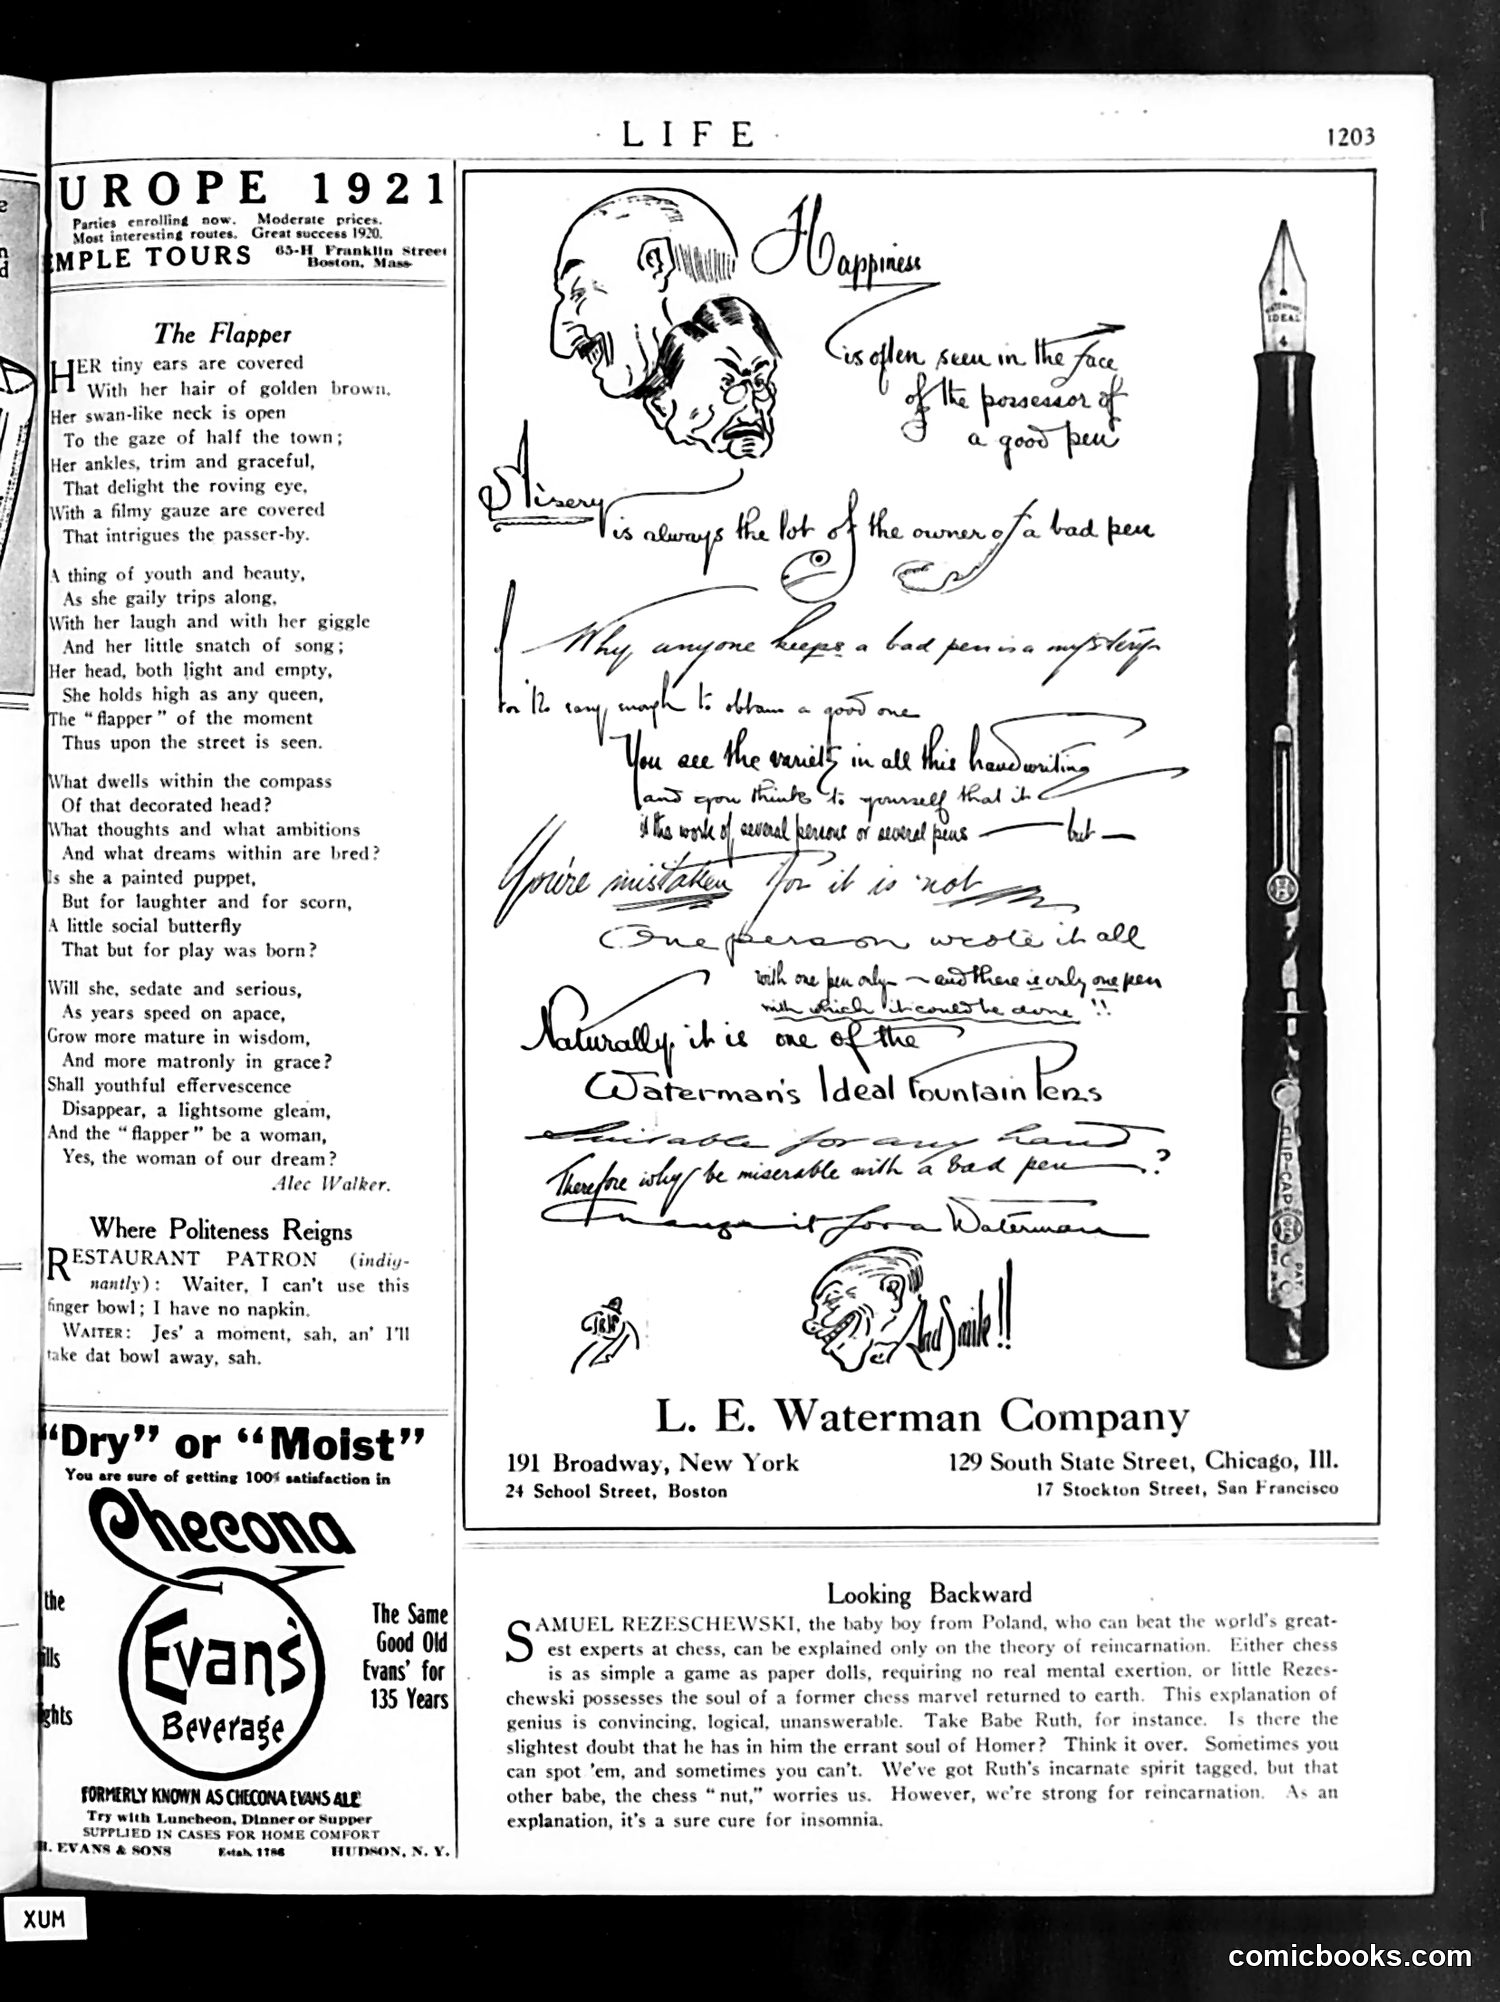 · LIFE ·
1203
UROPE 1921
Parties enrolling now. Moderate prices.
Most interesting routes. Great success 1920.
EMPLE TOURS
65-H Franklin Street
Boston, Mass.
The Flapper
HER tiny ears are covered
With her hair of golden brown.
Her swan-like neck is open
To the gaze of half the town;
Her ankles, trim and graceful,
That delight the roving eye,
With a filmy gauze are covered
That intrigues the passer-by.
A thing of youth and beauty,
As she gaily trips along,
With her laugh and with her giggle
And her little snatch of song;
Her head, both light and empty,
She holds high as any queen,
The "flapper" of the moment
Thus upon the street is seen.
What dwells within the compass
Of that decorated head?
What thoughts and what ambitions
And what dreams within are bred?
Is she a painted puppet,
But for laughter and for scorn,
A little social butterfly
That but for play was born?
Will she, sedate and serious,
As years speed on apace,
Grow more mature in wisdom,
And more matronly in grace?
Shall youthful effervescence
Disappear, a lightsome gleam,
And the "flapper" be a woman,
Yes, the woman of our dream?
Alec Walker.
Where Politeness Reigns
RESTAURANT PATRON (indig-
nantly): Waiter, I can't use this
finger bowl; I have no napkin.
WAITER: Jes' a moment, sah, an' I'll
take dat bowl away, sah.
"Dry" or "Moist"
You are sure of getting 100% satisfaction in
Checona
Evans'
Beverage
The Same
Good Old
Evans' for
135 Years
the
ills
ghts
FORMERLY KNOWN AS CHECONA EVANS ALE
Try with Luncheon, Dinner or Supper
SUPPLIED IN CASES FOR HOME COMFORT
H. EVANS & SONS Estab. 1786 HUDSON, N. Y.
Happiness
is often seen in the face
of the possessor of
a good pen
Misery
is always the lot of the owner of a bad pen
Why anyone keeps a bad pen is a mystery
for 'tis easy enough to obtain a good one
You see the variety in all this handwriting
and you think to yourself that it
is the work of several persons or several pens — but —
You're mistaken for it is not
One person wrote it all
with one pen only — and there is only one pen
with which it could be done !!
Naturally it is one of the
Waterman's Ideal Fountain Pens
Suitable for any hand
Therefore why be miserable with a bad pen ?
Change it for a Waterman
And Smile !!
WATERMAN'S
IDEAL
4
CLIP-CAP
PAT.
L. E. Waterman Company
191 Broadway, New York
129 South State Street, Chicago, Ill.
24 School Street, Boston
17 Stockton Street, San Francisco
Looking Backward
SAMUEL REZESCHEWSKI, the baby boy from Poland, who can beat the world's great-
est experts at chess, can be explained only on the theory of reincarnation. Either chess
is as simple a game as paper dolls, requiring no real mental exertion, or little Rezes-
chewski possesses the soul of a former chess marvel returned to earth. This explanation of
genius is convincing, logical, unanswerable. Take Babe Ruth, for instance. Is there the
slightest doubt that he has in him the errant soul of Homer? Think it over. Sometimes you
can spot 'em, and sometimes you can't. We've got Ruth's incarnate spirit tagged, but that
other babe, the chess "nut," worries us. However, we're strong for reincarnation. As an
explanation, it's a sure cure for insomnia.
XUM
comicbooks.com